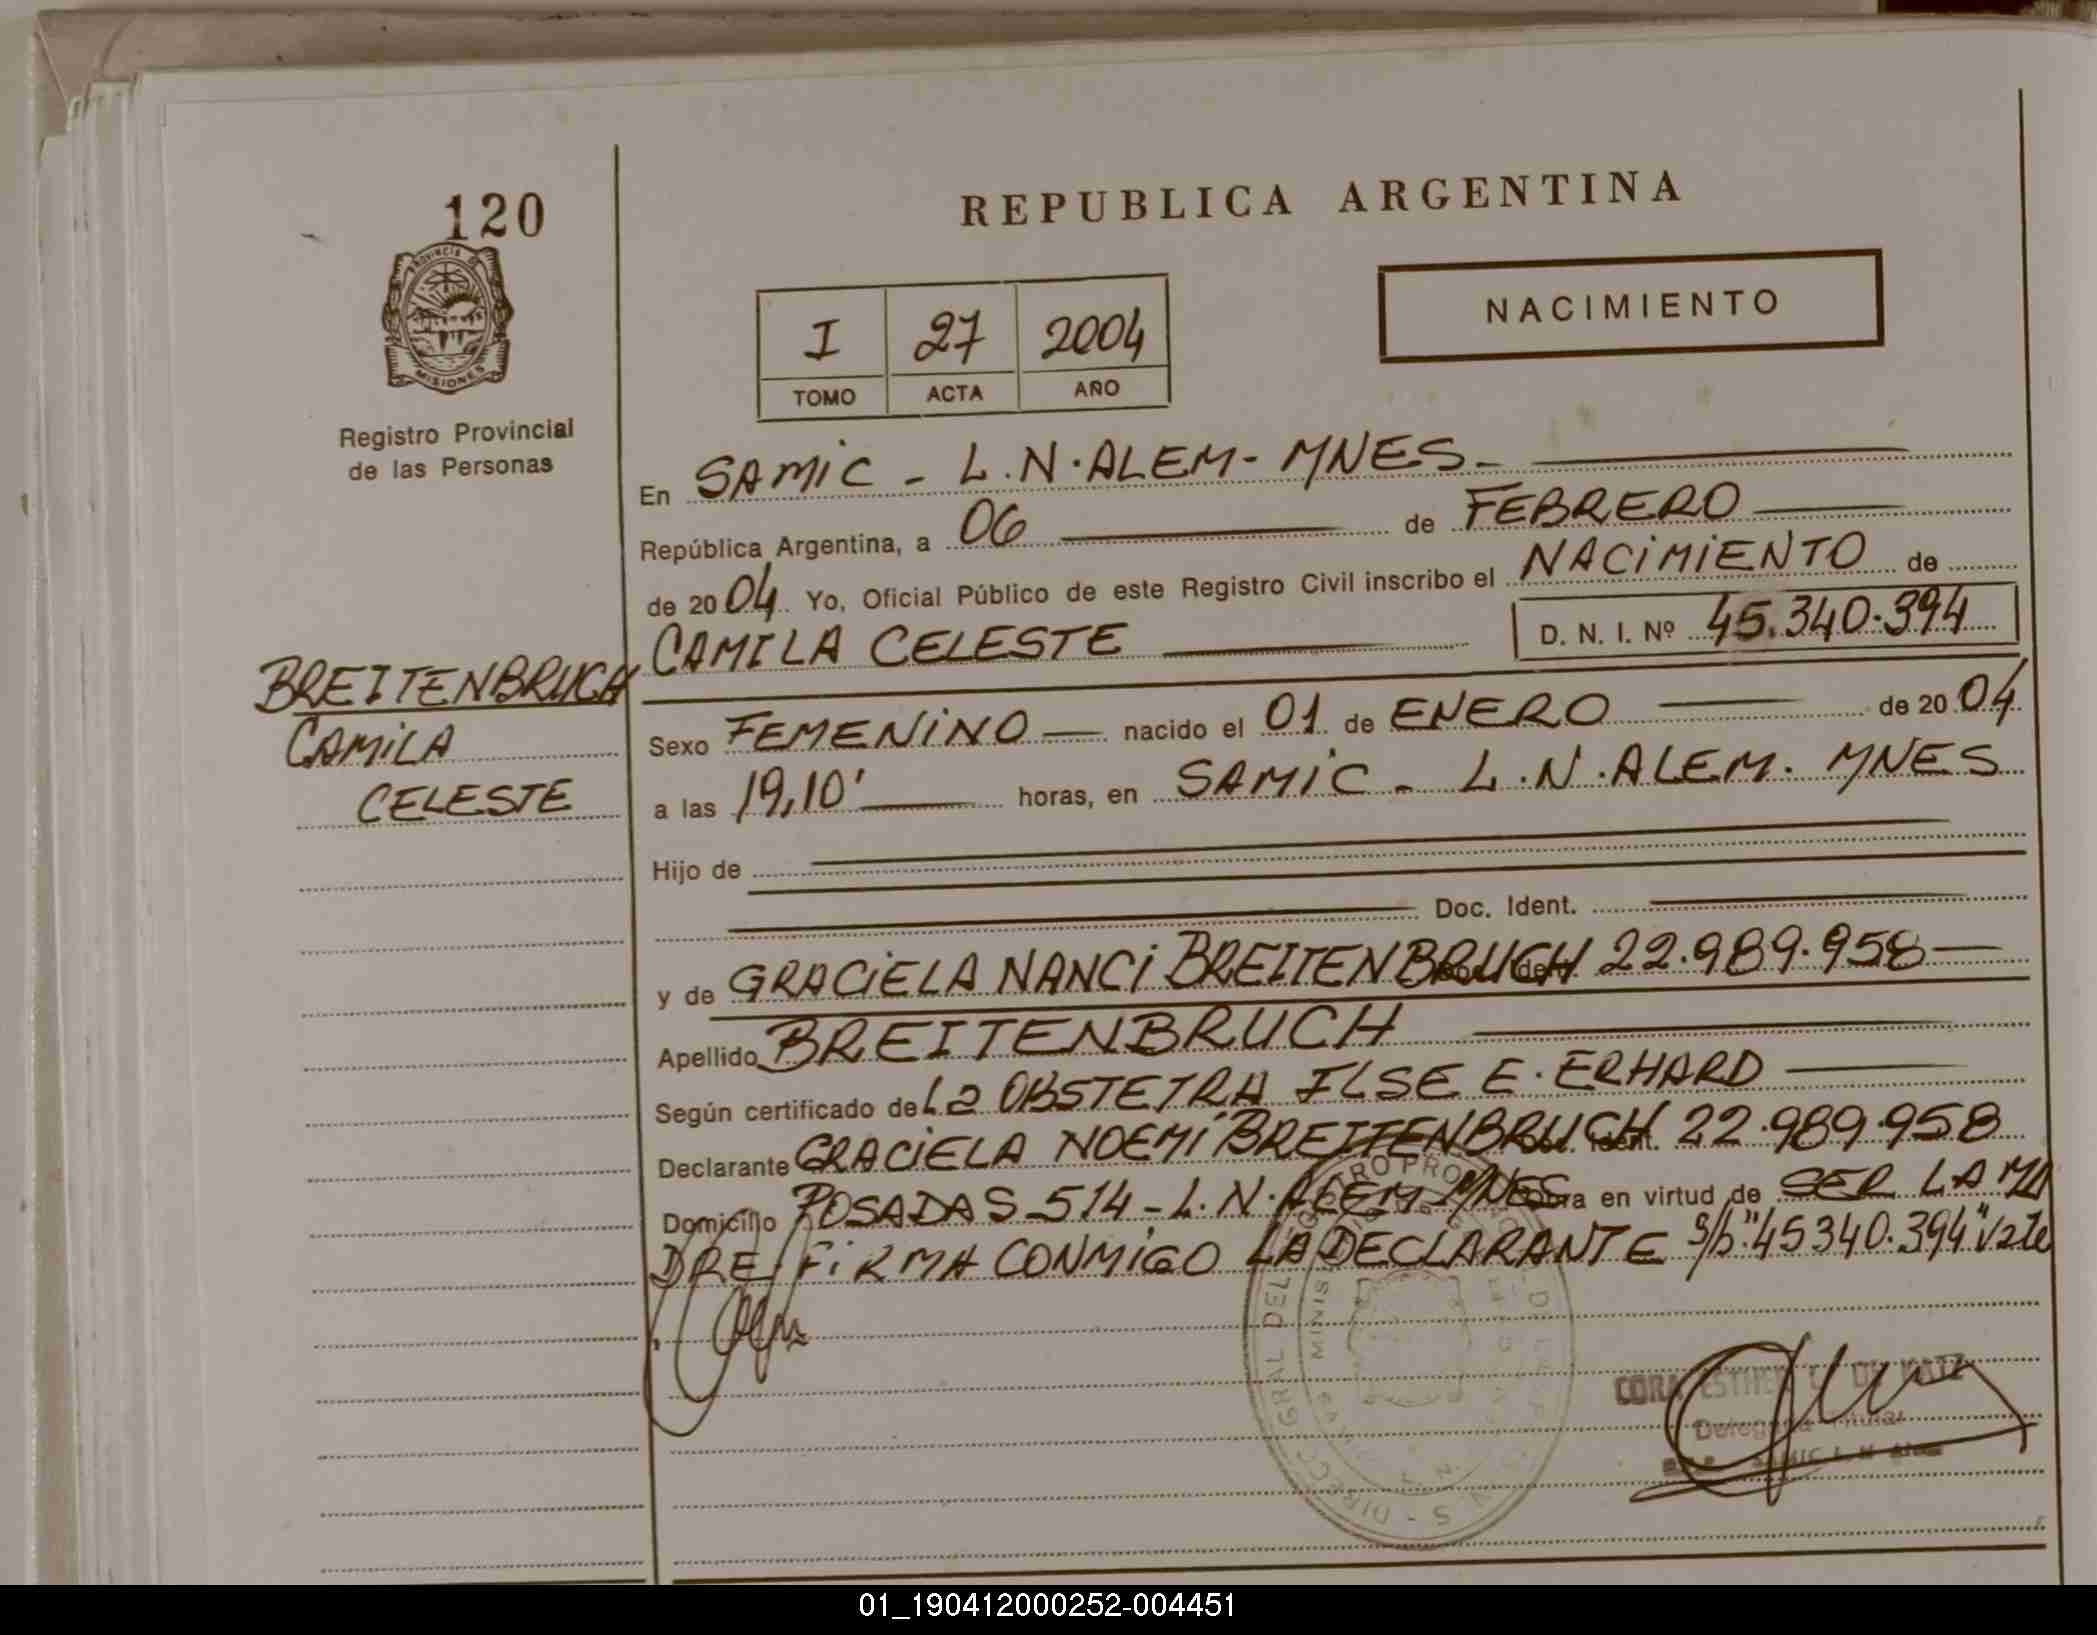 120
PROVINCIA DE
MISIONES
Registro Provincial
de las Personas
BREITENBRUCH
CAMILA
CELESTE
REPUBLICA ARGENTINA
NACIMIENTO
I 27 2004
TOMO ACTA AÑO
En SAMIC - L.N.ALEM- MNES-
República Argentina, a 06 de FEBRERO
de 2004 Yo, Oficial Público de este Registro Civil inscribo el NACIMIENTO de
CAMILA CELESTE D. N. I. Nº 45.340.394
Sexo FEMENINO nacido el 01 de ENERO de 2004
a las 19,10' horas, en SAMIC - L.N.ALEM. MNES
Hijo de
Doc. Ident.
y de GRACIELA NANCI BREITENBRUCH Doc. Ident. 22.989.958
Apellido BREITENBRUCH
Según certificado de La OBSTETRA ILSE E. ERHARD
Declarante GRACIELA NOEMI BREITENBRUCH Doc. Ident. 22.989.958
Domicilio POSADAS 514 - L.N.ALEM MNES Obra en virtud de SER LA MA
DRE, FIRMA CONMIGO LA DECLARANTE s/b "45340.394" Vale
DIRECC GRAL DEL
MINIS
CORA ESTHER DE KATZ
Delegada Titular
SAMIC L. N. ALEM
01_190412000252-004451